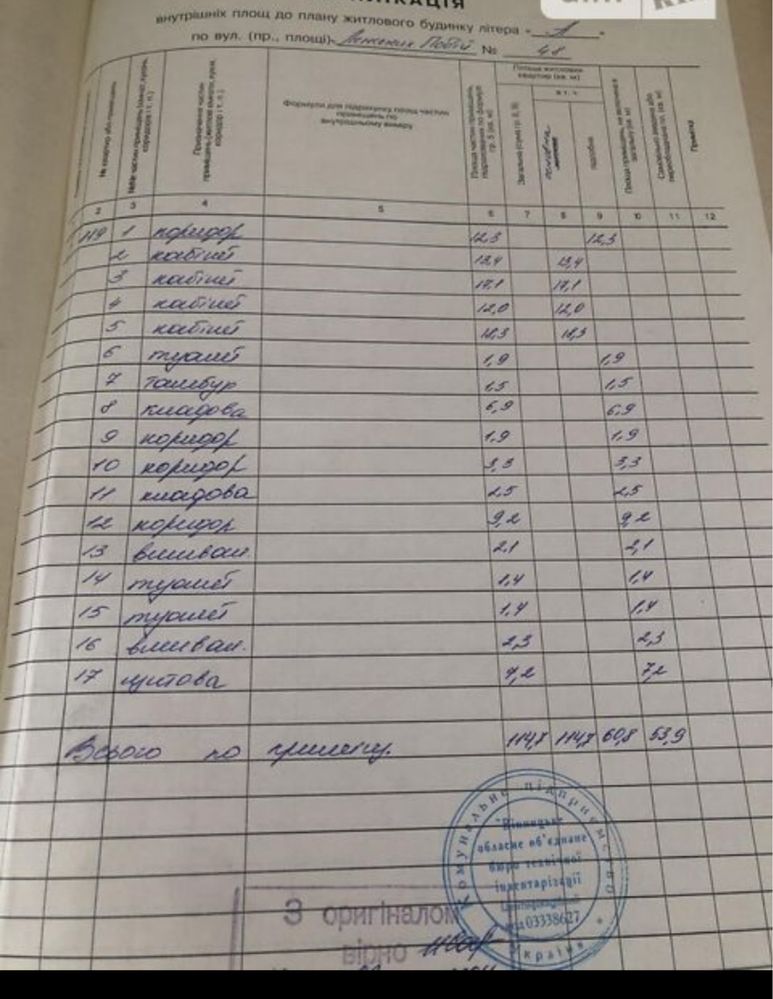 внутрішніх площ до плану житлового будинку літера "А"
по вул. (пр., площі) № 48
№ квартир або приміщень
Призначення частин приміщень (житлова кімната, кухня, коридор і т. п.)
Формули для підрахунку площ частин приміщень по внутрішньому виміру
Площа частин приміщень, підрахованих по формулі гр. 5 (кв. м)
Площа житлових квартир (кв. м)
в т. ч.
Загальна (сума гр. 8, 9)
основна
підсобна
Примітка
2 3 4 5 6 7 8 9 10 11 12
119 1 коридор 12,3 12,3
2 кабінет 13,4 13,4
3 кабінет 17,1 17,1
4 кабінет 12,0 12,0
5 кабінет 18,3 18,3
6 туалет 1,9 1,9
7 тамбур 1,5 1,5
8 кладова 6,9 6,9
9 коридор 1,9 1,9
10 коридор 3,3 3,3
11 кладова 2,5 2,5
12 коридор 9,2 9,2
13 вмивал. 2,1 2,1
14 туалет 1,4 1,4
15 туалет 1,4 1,4
16 вмивал. 2,3 2,3
17 щитова 7,2 7,2
Всього по приміщ. 114,7 114,7 60,8 53,9
Комунальне підприємство
"Вінницьке
обласне об'єднане
бюро технічної
інвентаризації
код 03338627
Україна
З оригіналом
вірно